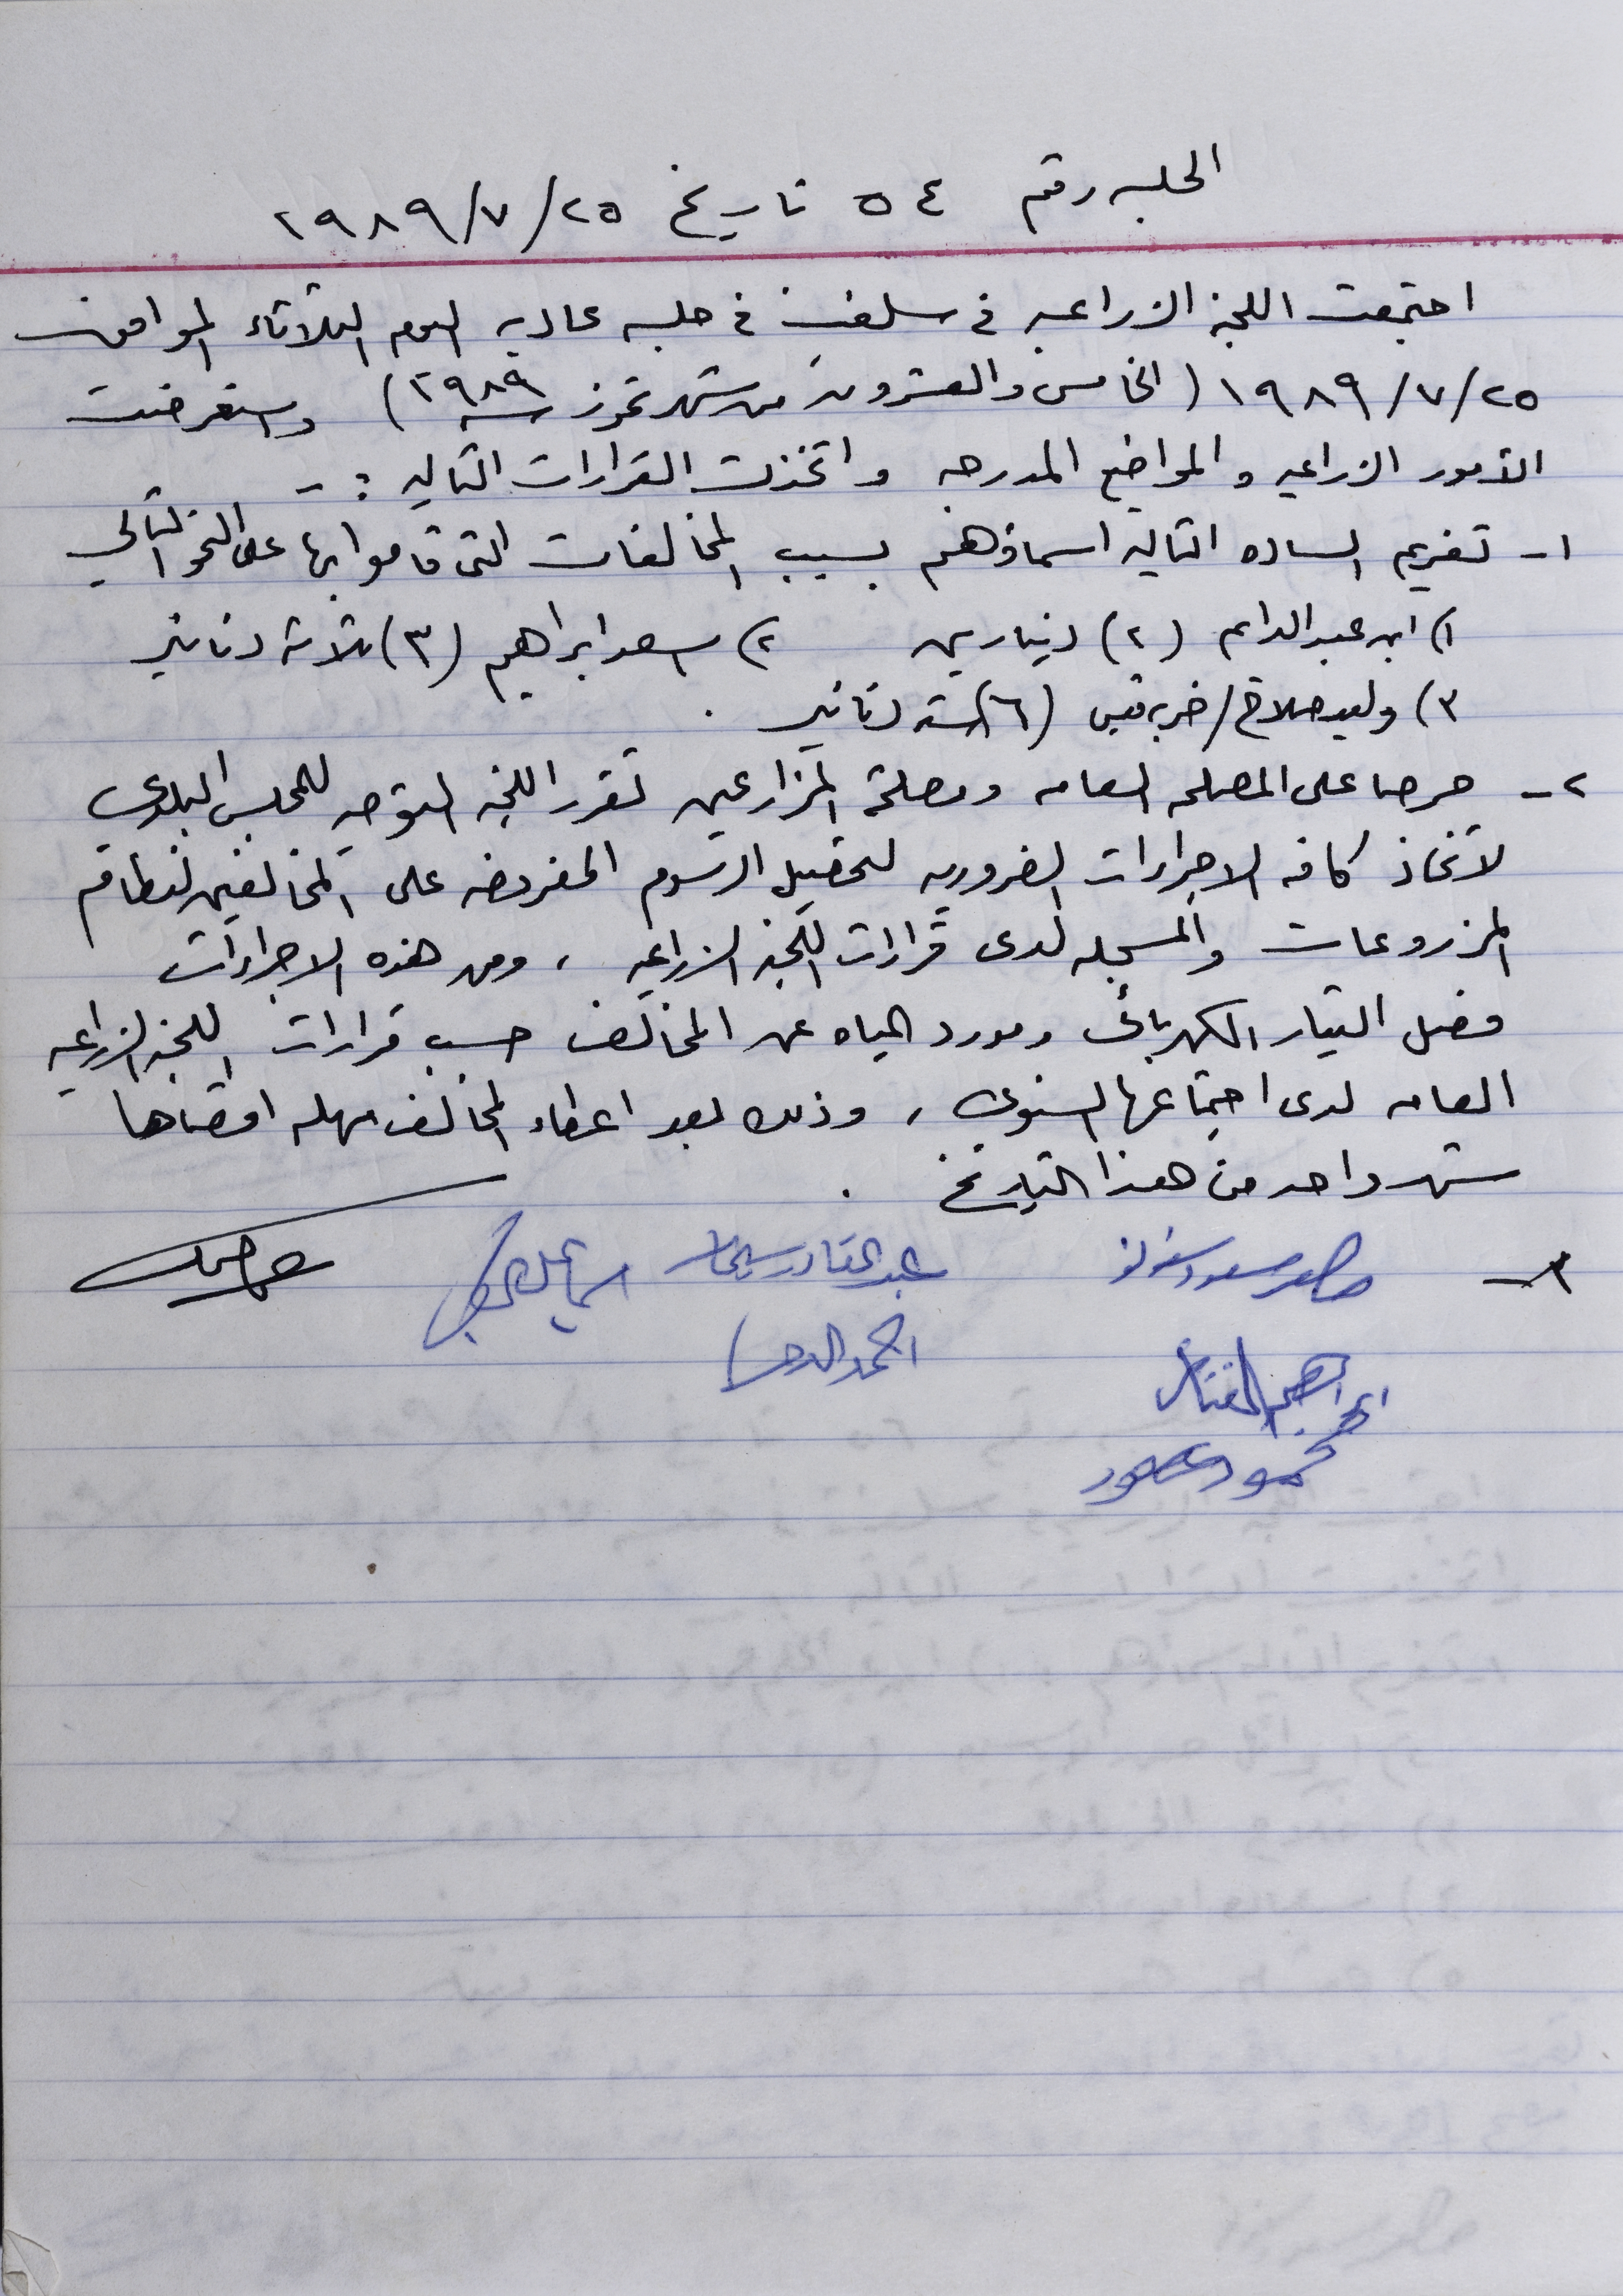 الجلسه رقم ٥٤ تاريخ ٢٥/٧/١٩٨٩
اجتمعت اللجنة الزراعيه في سلفيت في جلسه عاديه اليوم الثلاثاء الموافق
٢٥/٧/١٩٨٩ (الخامس والعشرون من شهر تموز سنه ١٩٨٩) واستعرضت
الأمور الزراعيه والمواضيع المدرجه واتخذت القرارات التاليه :-
١- تغريم الساده التاليه اسماؤهم بسبب المخالفات التي قاموا بها على النحو التالي
١) ابن عبد الدايم (٢) دينارين ٢) اسعد ابراهيم (٣) ثلاثة دنانير
٣) وليد صلاح/خربة قيس (٦) سته دنانير .
٢- حرصا على المصلحه العامه ومصلحة المزارعين تقرر اللجنه التوجه للمجلس البلدي
لاتخاذ كافه الاجراءات الضروريه لتحصيل الرسوم المفروضه على المخالفين لنظام
المزروعات والمسجله لدى قرارات اللجنه الزراعيه ، ومن هذه الاجراءات
فصل التيار الكهربائي ومورد المياه عن المخالف حسب قرارات اللجنه الزراعيه
العامه لدى اجتماعها السنوي ، وذلك بعد اعطاء المخالف مهله اقصاها
شهر واحد من هذا التاريخ .
عبد القادر
ابراهيم
محمود
احمد